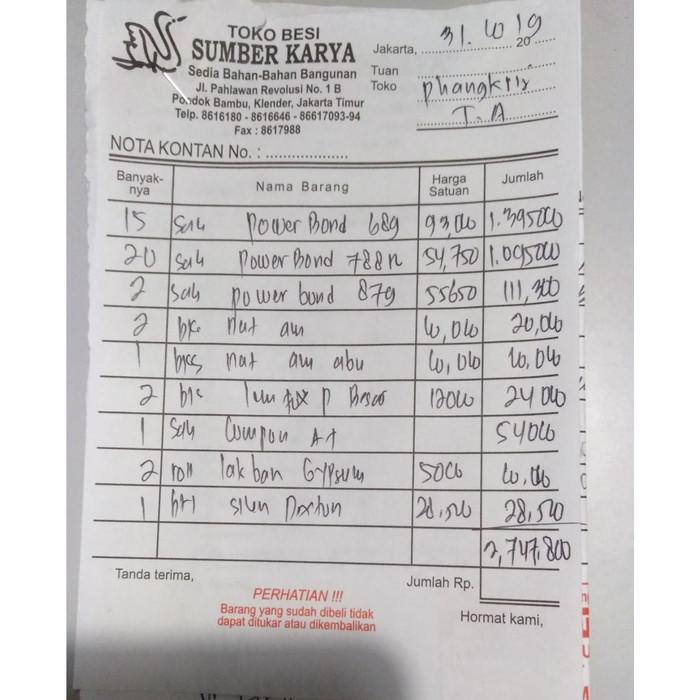 TOKO BESI
SUMBER KARYA
Sedia Bahan-Bahan Bangunan
Jl. Pahlawan Revolusi No. 1 B
Pondok Bambu, Klender, Jakarta Timur
Telp. 8616180 - 8616646 - 86617093-94
Fax : 8617988
Jakarta, 31. 10 19 20
Tuan
Toko
T.A
NOTA KONTAN No. :
Banyak-nya Nama Barang Harga Satuan Jumlah
15 Sak Power Bond 689 93,000 1.395000
20 Sak Power Bond 788 54,750 1.095000
2 Sak power bond 879 55650 111,300
2 nat 10,000 20,000
1 nat abu 10,000 10,000
2 12000 24000
1 Sak 54000
2 roll lakban Gypsum 5000 10,000
1 28,500 28,500
2,747,800
Tanda terima, Jumlah Rp.
PERHATIAN !!!
Barang yang sudah dibeli tidak
dapat ditukar atau dikembalikan
Hormat kami,